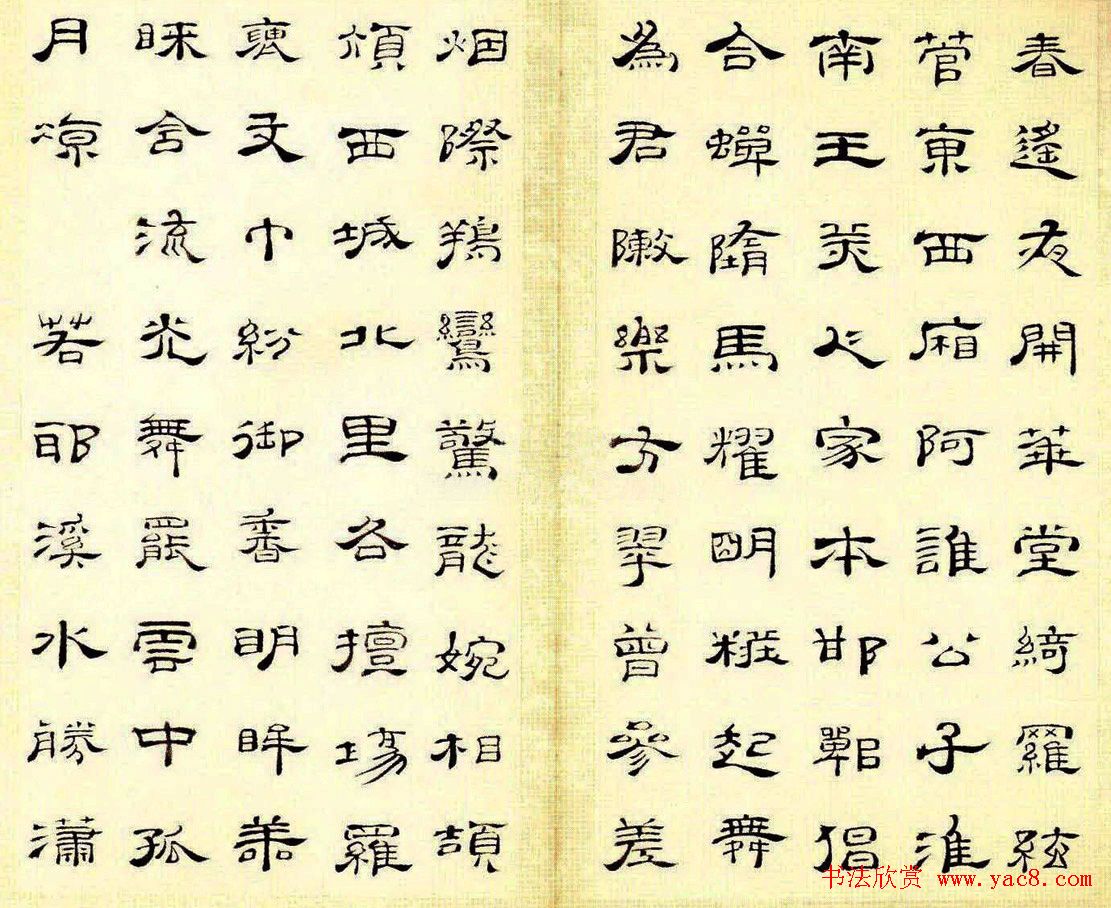 春遙夜開華堂綺羅絃
菅東西廂阿誰公子淮
南王美人家本邯鄲倡
合蟬墮馬耀明糚起舞
為君敶樂方翠曾參差
烟際鴹鸞驚龍婉相頡
頏西城北里名擅場羅
衣文巾紛御香明眸善
睞含流光舞罷雲中孤
月涼 若耶溪水勝瀟
书法欣赏 www.yac8.com